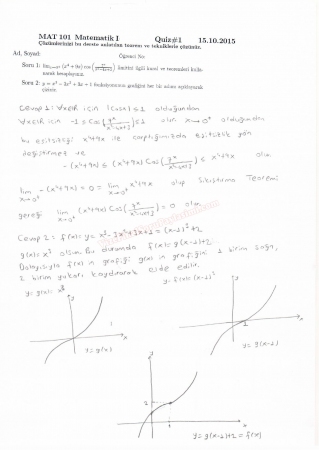 MAT 101 Matematik I Quiz#1 15.10.2015
Çözümlerinizi bu derste anlatılan teorem ve tekniklerle çözünüz.
Ad, Soyad: Öğrenci No:
Soru 1:
limitini ilgili kural ve teoremleri kulla-
narak hesaplayınız.
Soru 2: y = x³ − 3x² + 3x + 1 fonksiyonunun grafiğini her bir adımı açıklayarak
çiziniz.
Cevap 1: ∀x∈ℝ için |cosx| ≤ 1 olduğundan
∀x∈ℝ için -1 ≤ Cos ≤ 1 olur. x→0⁺ olduğundan
bu eşitsizliği x²+9x ile çarptığımızda eşitsizlik yön
değiştirmez ve
-(x²+9x) ≤ (x²+9x) Cos ≤ x²+9x olur
lim -(x²+9x) = 0 = lim x²+9x olup Sıkıştırma Teoremi
x→0⁺ x→0⁺
gereği lim (x²+9x) Cos = 0 olur
x→0⁺
Cevap 2: f(x) = y = x³-3x²+3x+1 = (x-1)³+2
g(x) = x³ olsun. Bu durumda f(x) = g(x-1)+2
Dolayısıyla f(x) in grafiği g(x) in grafiğini 1 birim sağa,
2 birim yukarı kaydırarak elde edilir.
y = g(x) = x³
y
x
y = g(x)
y
x
y = g(x-1)
y
x
y = g(x-1)+2 = f(x)